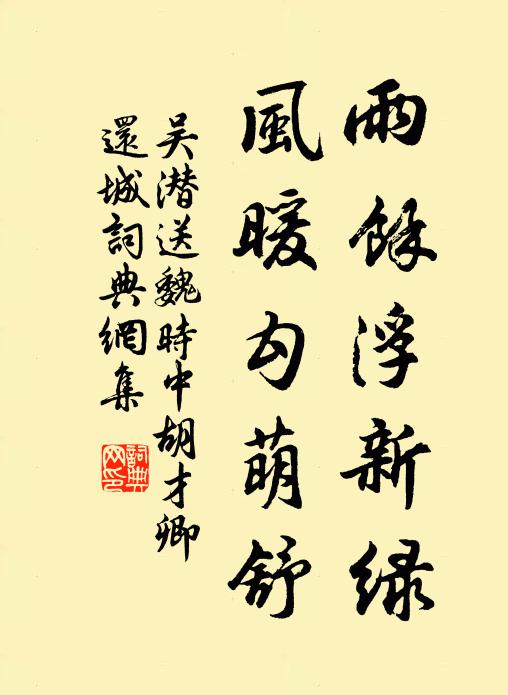 雨餘浮新绿
風暖勾萌舒
吴潜送魏時中胡才卿
還城詞典網集
詞典
网印